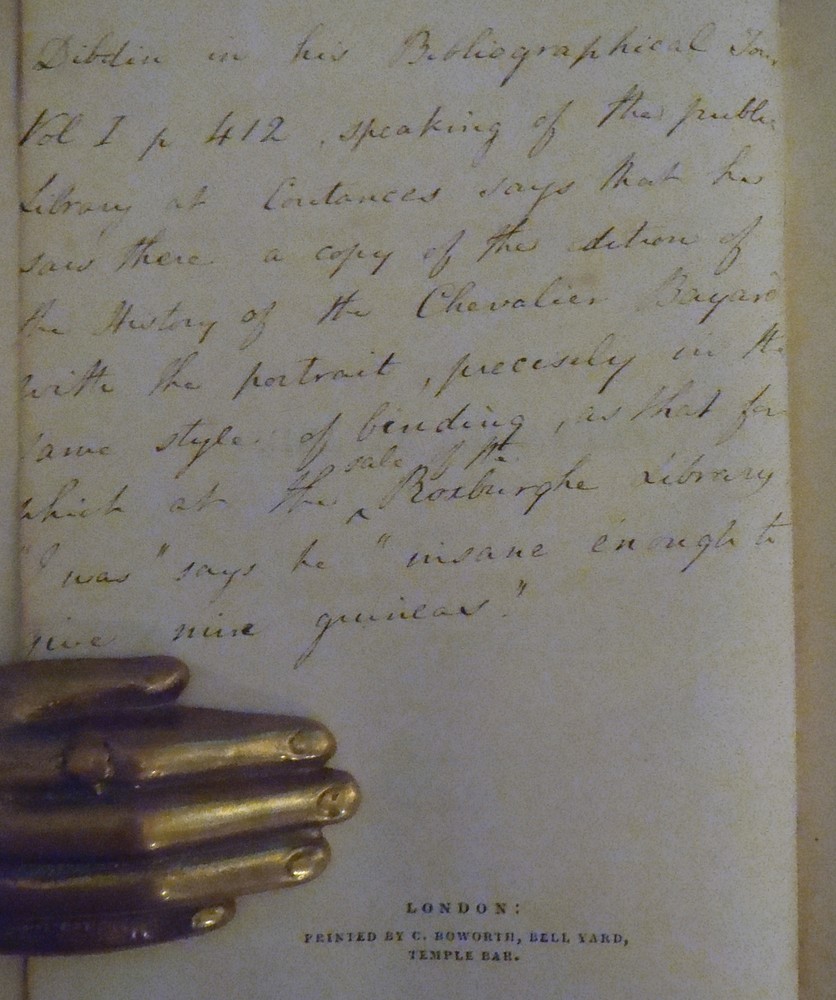 Dibdin in his Bibliographical Tour
Vol I p 412, speaking of the public
Library at Coutances says that he
saw there a copy of the edition of
the History of the Chevalier Bayard
with the portrait, precisely in the
same style of binding, as that for
which at the sale of the Roxburghe Library
"I was" says he "insane enough to
give nine guineas"
LONDON:
PRINTED BY C. ROWORTH, BELL YARD,
TEMPLE BAR.